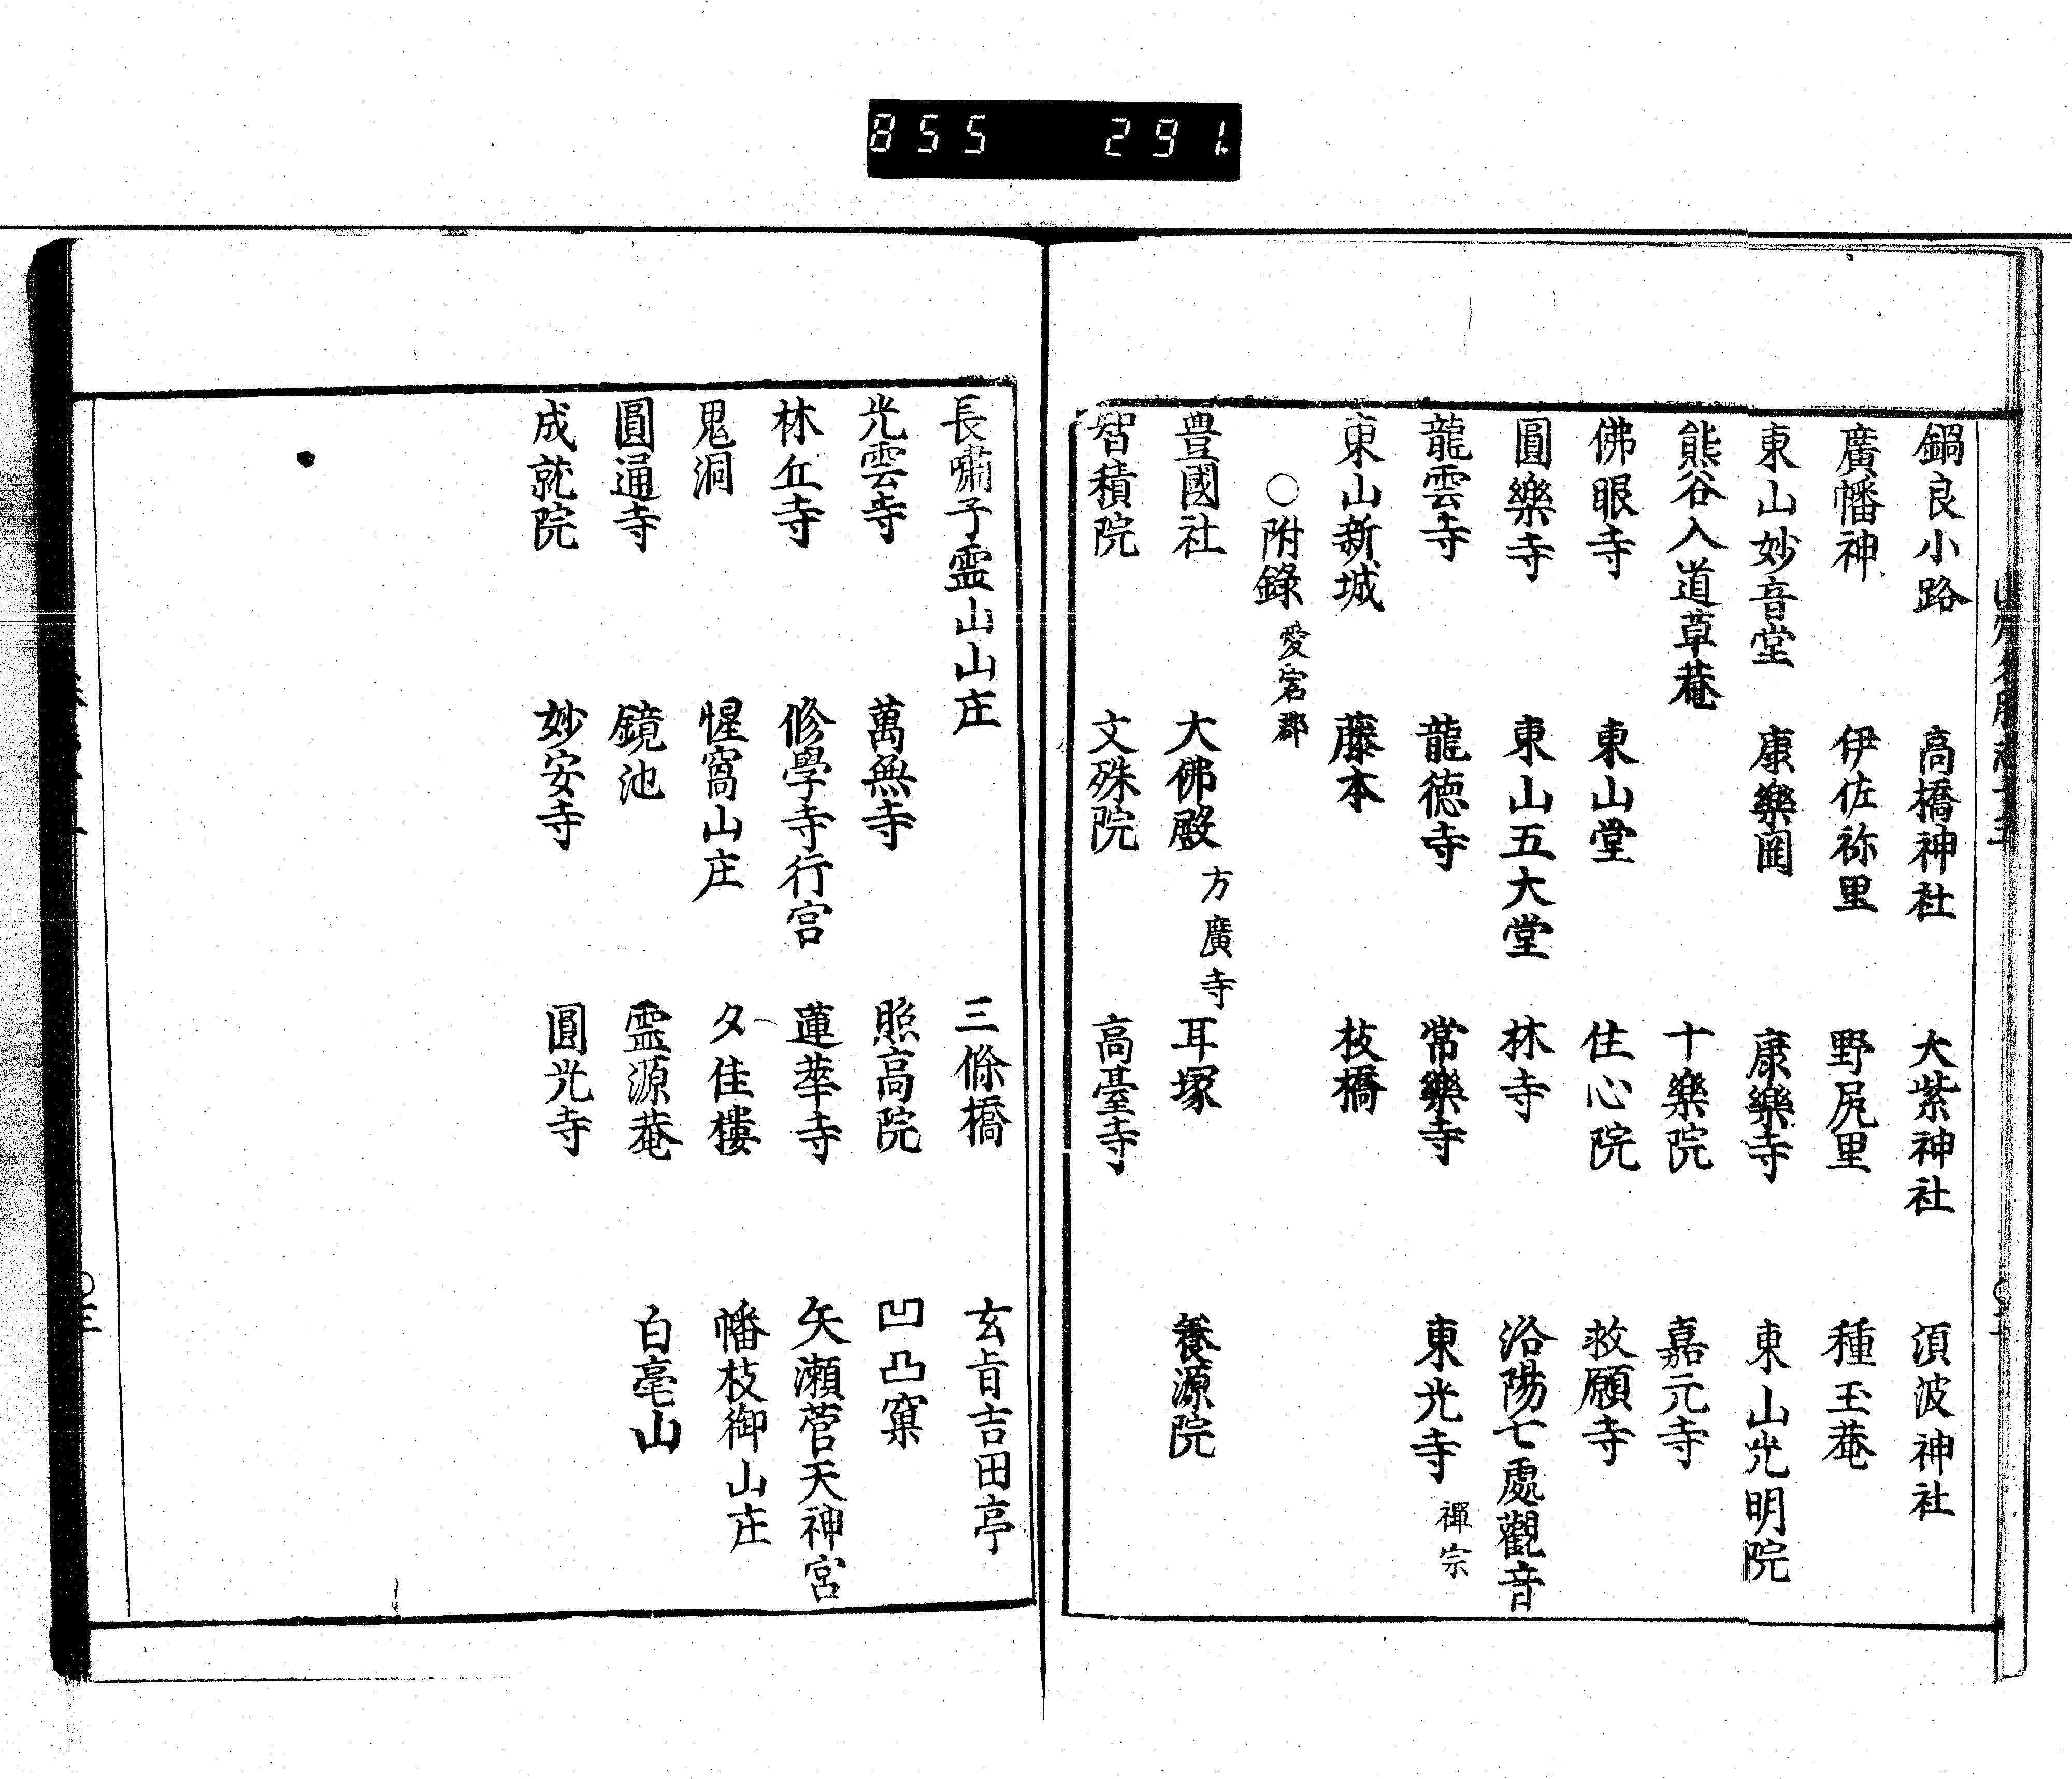 855 291
鍋良小路 高橋神社 大紫神社 須波神社
廣幡神 伊佐祢里 野尻里 種玉菴
東山妙音堂 康樂岡 康樂寺 東山光明院
熊谷入道草菴 十樂院 嘉元寺
佛眼寺 東山堂 住心院 救願寺
圓樂寺 東山五大堂 林寺 洛陽七處觀音
龍雲寺 龍徳寺 常樂寺 東光寺 禪宗
東山新城 藤本 枝橋
○附錄 愛宕郡
豊國社 大佛殿 方廣寺 耳塚 養源院
智積院 文殊院 高臺寺
長嘯子霊山山庄 三條橋 玄旨吉田亭
光雲寺 萬無寺 照高院 凹凸窠
林丘寺 修學寺行宮 蓮華寺 矢瀬菅天神宮
鬼洞 惺窩山庄 夕佳樓 幡枝御山庄
圓通寺 鏡池 霊源菴 白毫山
成就院 妙安寺 圓光寺